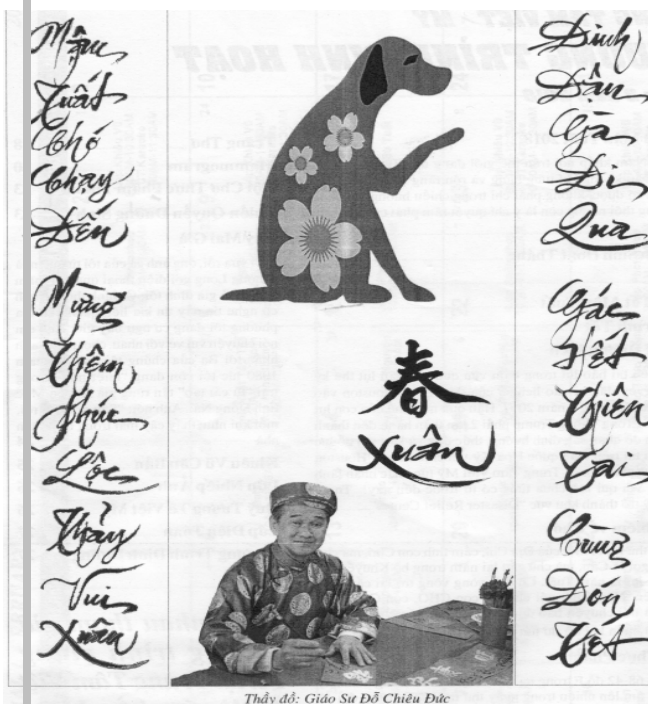 Mậu
Tuất
Chó
Chạy
Đến
Mừng
Thêm
Phúc
Lộc
Thảy
Vui
Xuân
春
Xuân
Đinh
Dậu
Gà
Đi
Qua
Gác
Hết
Thiên
Tai
Cùng
Đón
Tết
Thầy đồ: Giáo Sư Đỗ Chiêu Đức